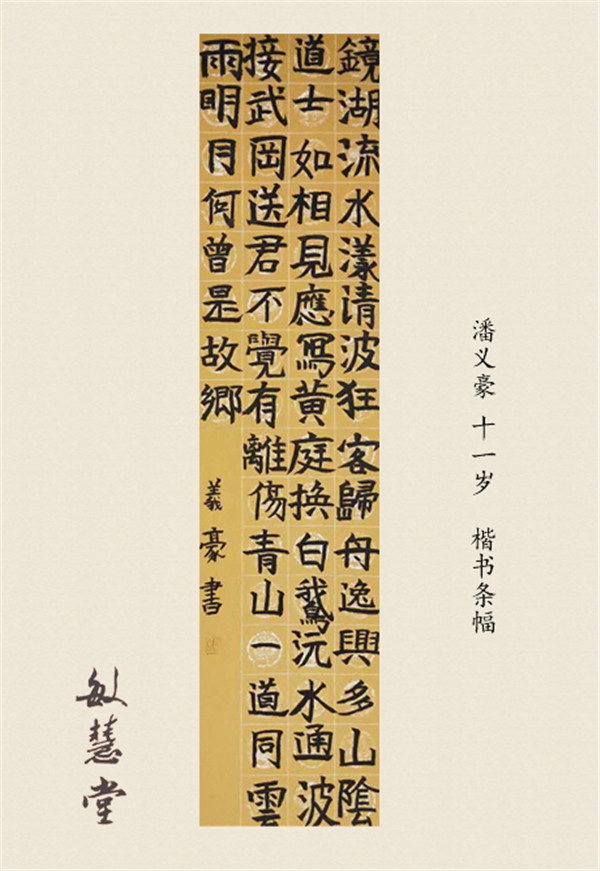 鏡湖流水漾清波狂客歸舟逸興多山陰
道士如相見應寫黃庭換白鵝沅水通波
接武岡送君不覺有離傷青山一道同雲
雨明月何曾是故鄉
義豪書
潘义豪 十一岁 楷书条幅
敏慧堂